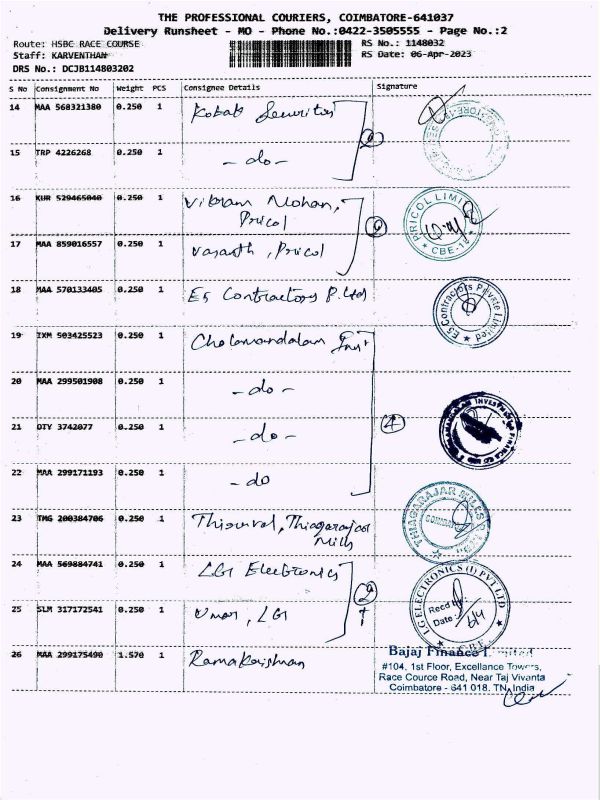 THE PROFESSIONAL COURIERS, COIMBATORE-641037
Delivery Runsheet - MO - Phone No.:0422-3505555 - Page No.:2
Route: HSBC RACE COURSE
RS No.: 1148032
Staff: KARVENTHAN
RS Date: 06-Apr-2023
DRS No.: DCJB114803202
S No Consignment No Weight PCS Consignee Details Signature
14 MAA 568321380 0.250 1 Kobab Securitas
15 TRP 4226268 0.250 1 - do -
16 KUR 529465040 0.250 1 Vikram Mohan,
Pricol
PRICOL LIMITED
CBE-18
17 MAA 859016557 0.250 1 Vasanth, Pricol
18 MAA 570133405 0.250 1 E5 Contractors P. Ltd
E5 Contractors Private Limited
19 IXM 503425523 0.250 1 Cholamandalam Invt
20 MAA 299501908 0.250 1 - do -
21 OTY 3742077 0.250 1 - do -
4
22 MAA 299171193 0.250 1 - do
23 TMG 200384706 0.250 1 Thisurval, Thiagarajar
Mills
THIAGARAJAR MILLS
24 MAA 569884741 0.250 1 LG Electronics
LG ELECTRONICS (I) PVT LTD
Recd by:
Date: 6/4
CBE.
25 SLM 317172541 0.250 1 Umar, LG
26 MAA 299175490 1.570 1 Ramakrishnan
Bajaj Finance Limited
#104, 1st Floor, Excellance Towers,
Race Cource Road, Near Taj Vivanta
Coimbatore - 641 018. TN, India